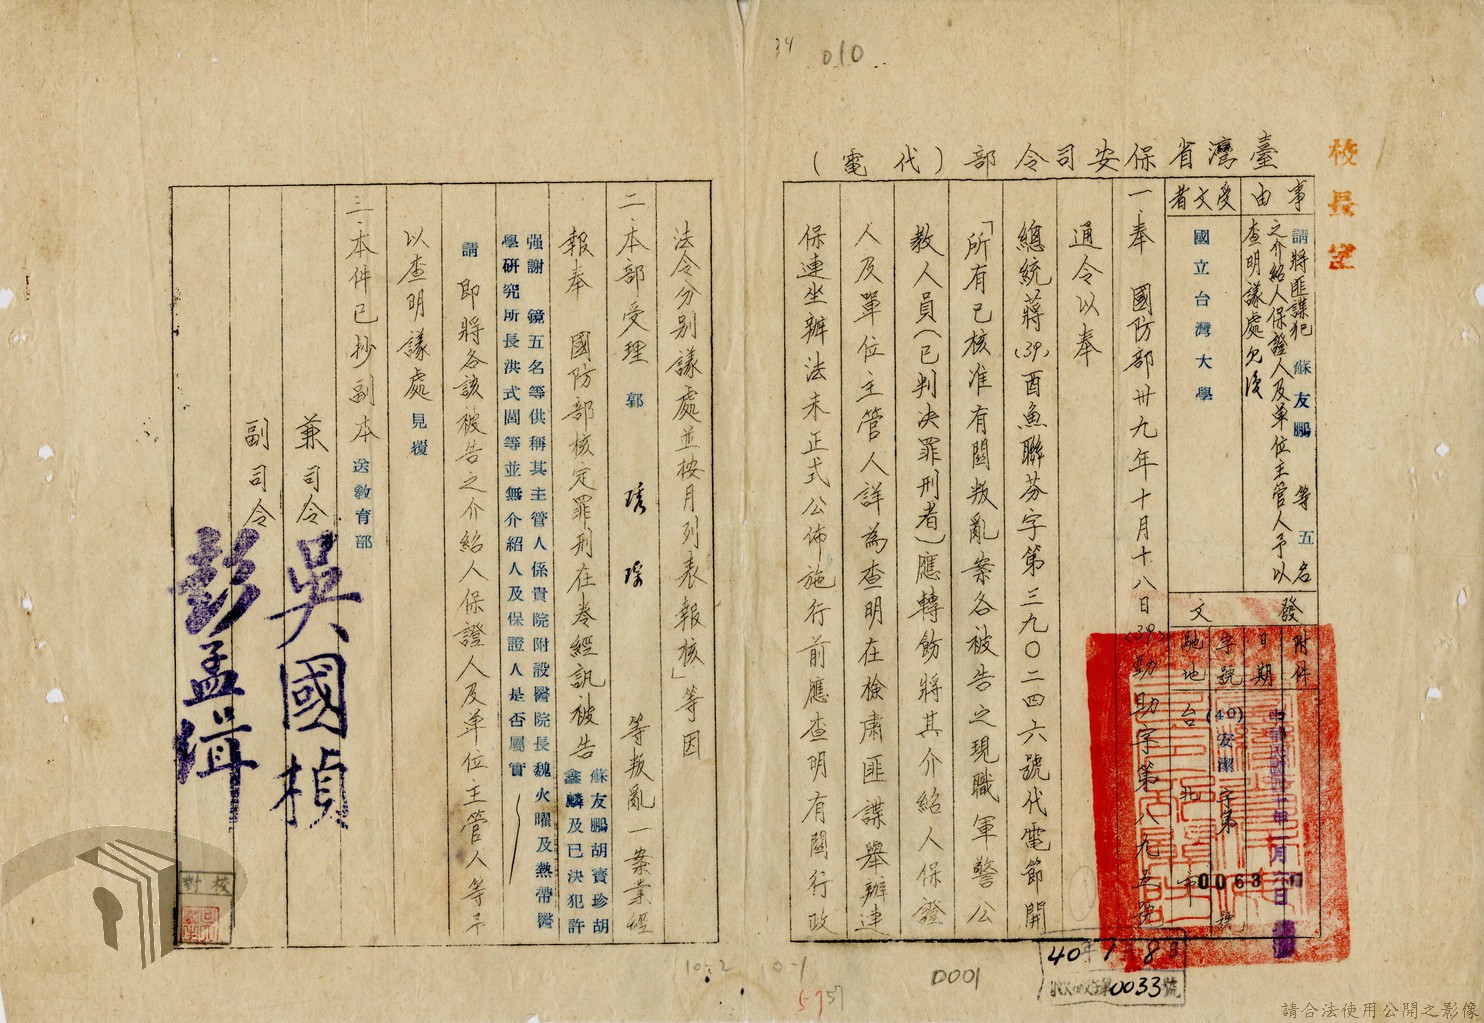 34
010
校長室
臺灣省保安司令部(代電)
事由
請將匪諜犯 蘇友鵬 等五名
之介紹人保證人及單位主管人予以
查明議處
受文者
國立台灣大學
發文
附件
日期
中華民國四十年一月六日
字號
(40)安潔字第0063號
馳地
台北市
一、奉 國防部卅九年十月十八日(39)勁助字第八九五號
通令以奉
總統蔣(39)酉魚聯芬字第三九〇二四六號代電節開
「所有已核准有關叛亂案各被告之現職軍警公
教人員(已判決罪刑者)應轉飭將其介紹人保證
人及單位主管人詳為查明在檢肅匪諜舉辦連
保連坐辦法未正式公佈施行前應查明有關行政
法令分別議處並按月列表報核」等因
二、本部受理 郭琇琮 等叛亂一案業經
報奉 國防部核定罪刑在卷經訊被告 蘇友鵬胡寶珍胡
鑫麟及已決犯許
强謝 鏡五名等供稱其主管人係貴院附設醫院長魏火曜及熱帶醫
學研究所長洪式閭等並無介紹人及保證人是否屬實
請 即將各該被告之介紹人保證人及单位主管人等予
以查明議處見覆
三、本件已抄副本送教育部
兼司令 吳國楨
副司令 彭孟緝
校對
40年1月8日
0033號
10-2
10-1
57
57
D001
請合法使用公開之影像